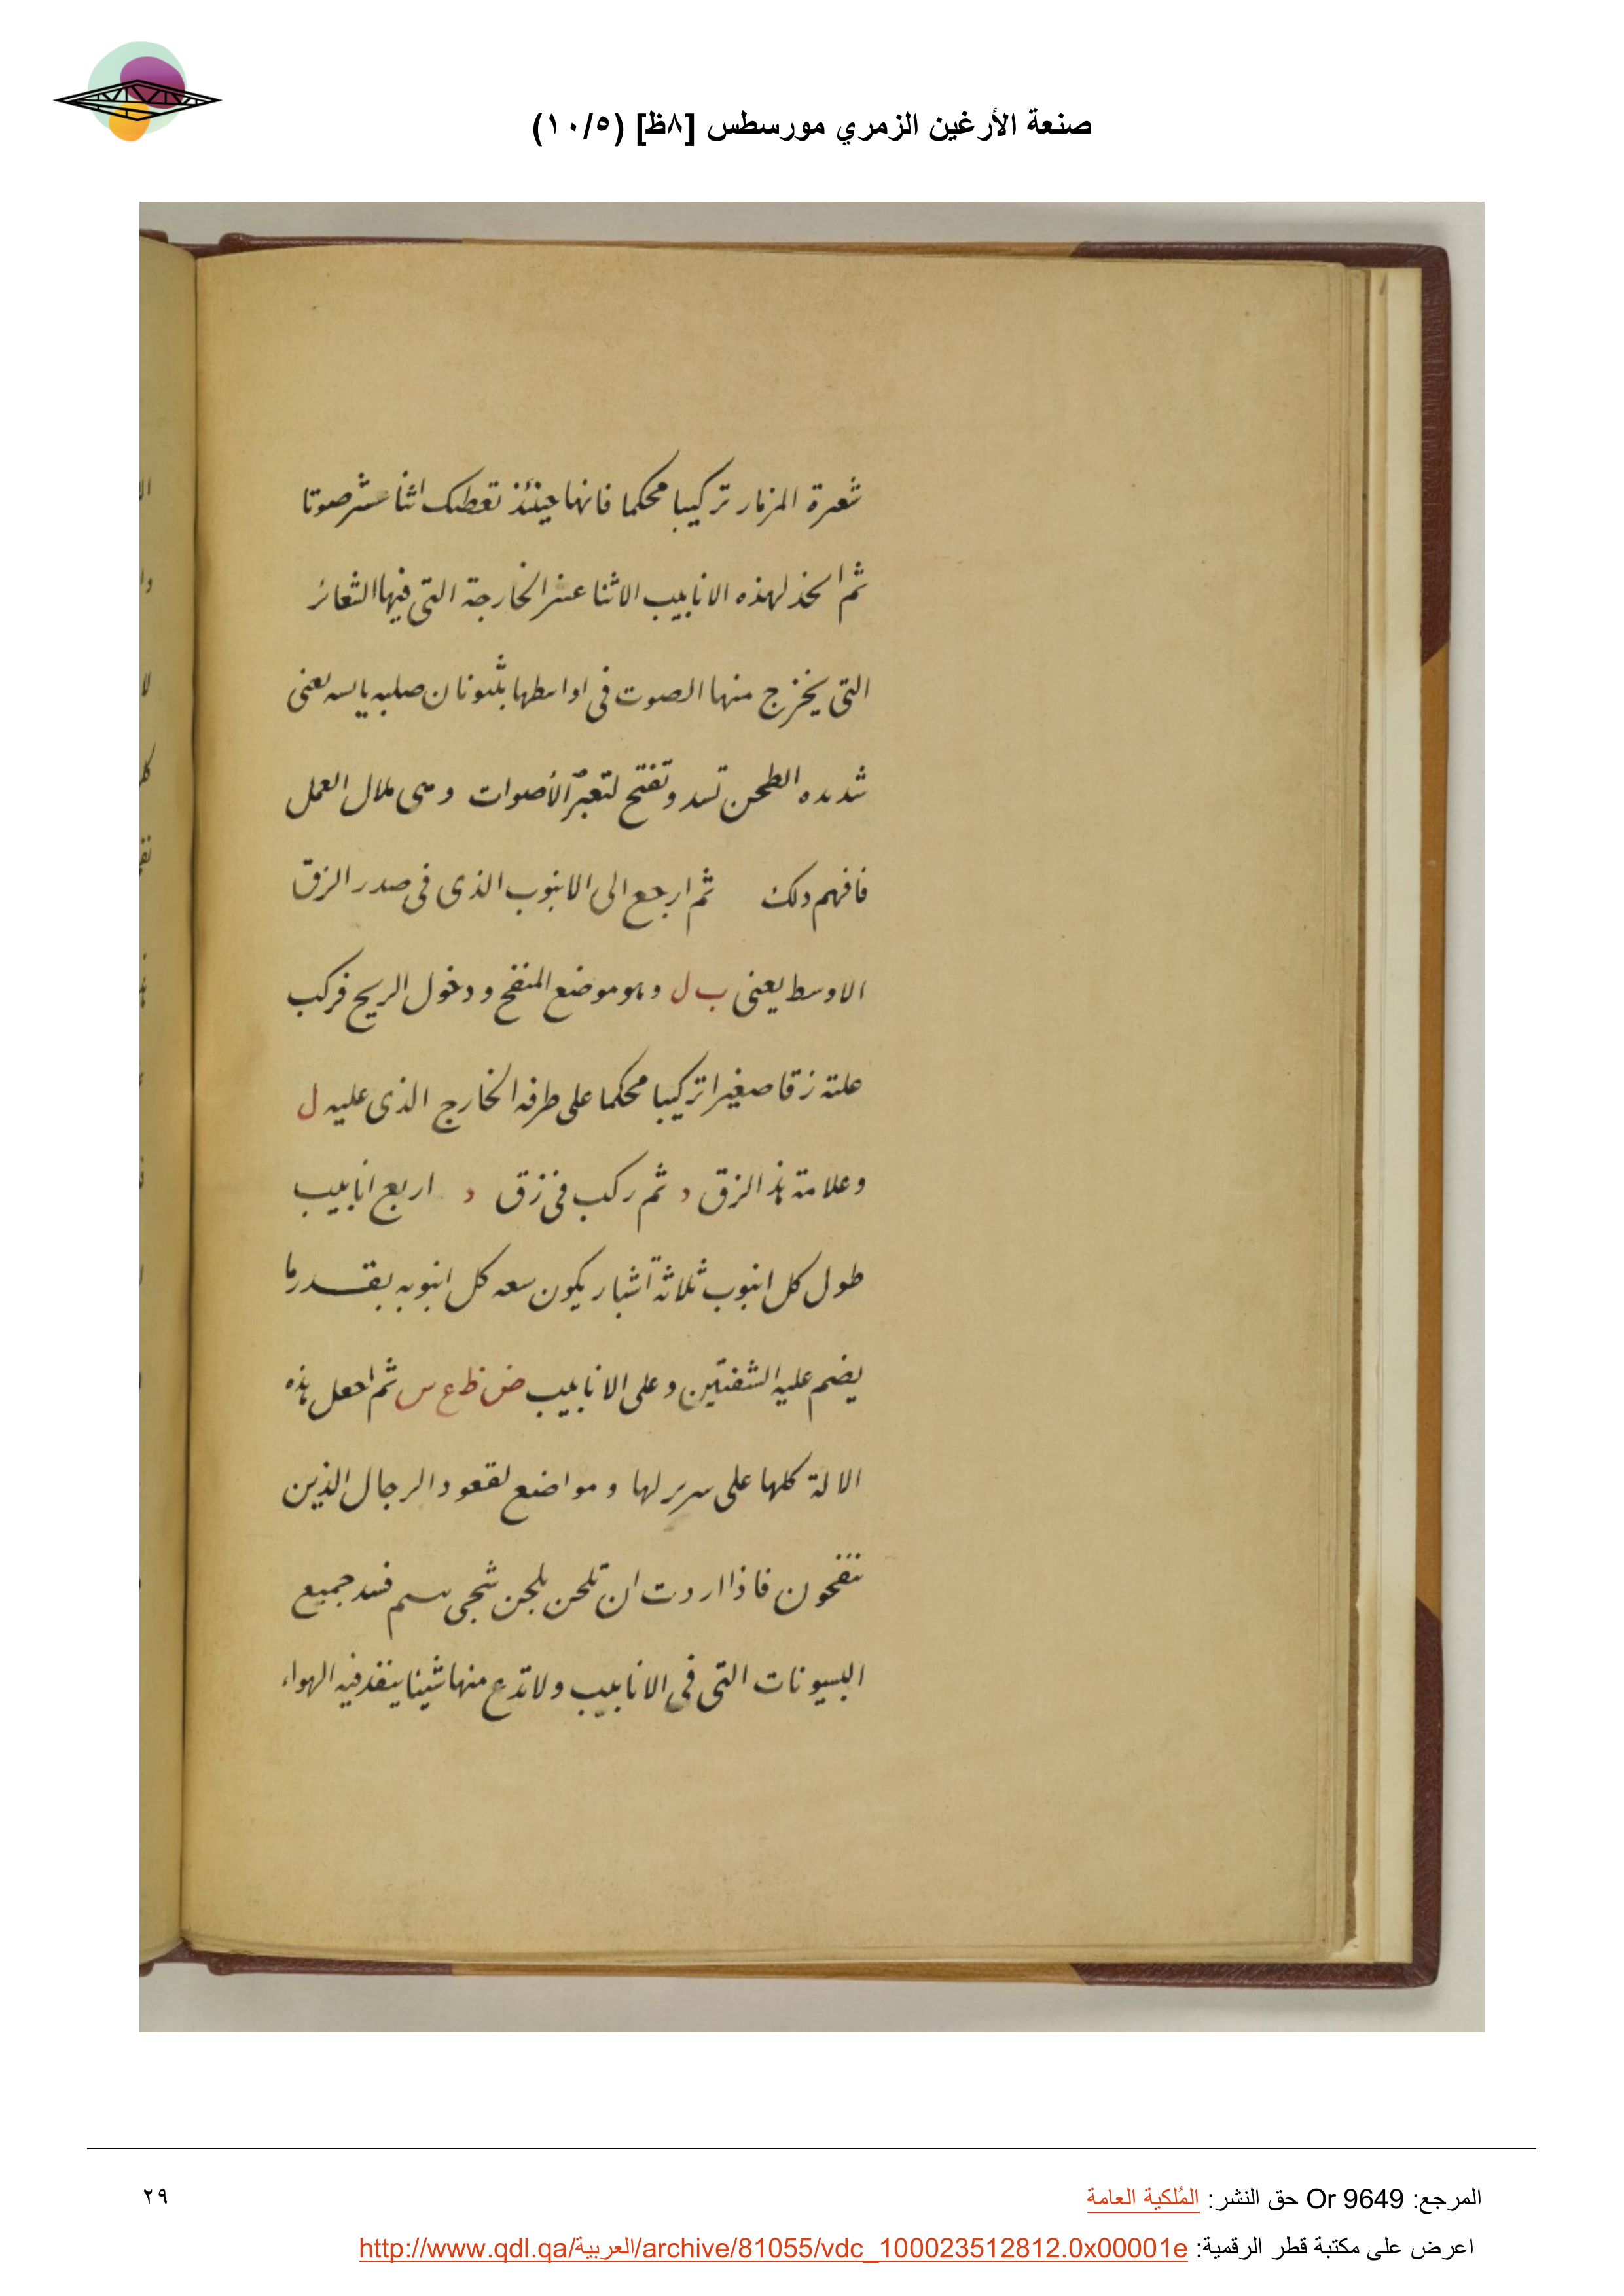 صنعة الأرغين الزمري مورسطس [٨ظ] (١٠/٥)
شعرة المزمار تركيبا محكما فانها حينئذ تعطيك اثنا عشر صوتا
ثم اتخذ لهذه الانابيب الاثنا عشر الخارجة التى فيها الشعائر
التى يخرج منها الصوت فى اواسطها بثيونات صلبه يابسه يعنى
شديده الطحن تسد وتفتح لتعبّر الأصوات وهى ملال العمل
فافهم ذلك ثم ارجع الى الانبوب الذى فى صدر الزق
الاوسط يعنى ب ل وهو موضع المنفخ ودخول الريح فركب
علته زقا صغيرا تركيبا محكما على طرفه الخارج الذى عليه ل
وعلامة هذ الزق د ثم ركب فى زق د اربع انابيب
طول كل انبوب ثلاثة أشبار يكون سعه كل انبوبه بقدر ما
يضم عليه الشفتين وعلى الانابيب ض ظ ع س ثم اجعل هذه
الالة كلها على سرير لها ومواضع لقعود الرجال الذين
ينفخون فاذا اردت ان تلحن بلحن شجى فسد جميع
البسيونات التى فى الانابيب ولا تدع منها شيئا ينفذ فيه الهواء
المرجع: Or 9649 حق النشر: المُلكية العامة
٢٩
اعرض على مكتبة قطر الرقمية: http://www.qdl.qa/العربية/archive/81055/vdc_100023512812.0x00001e